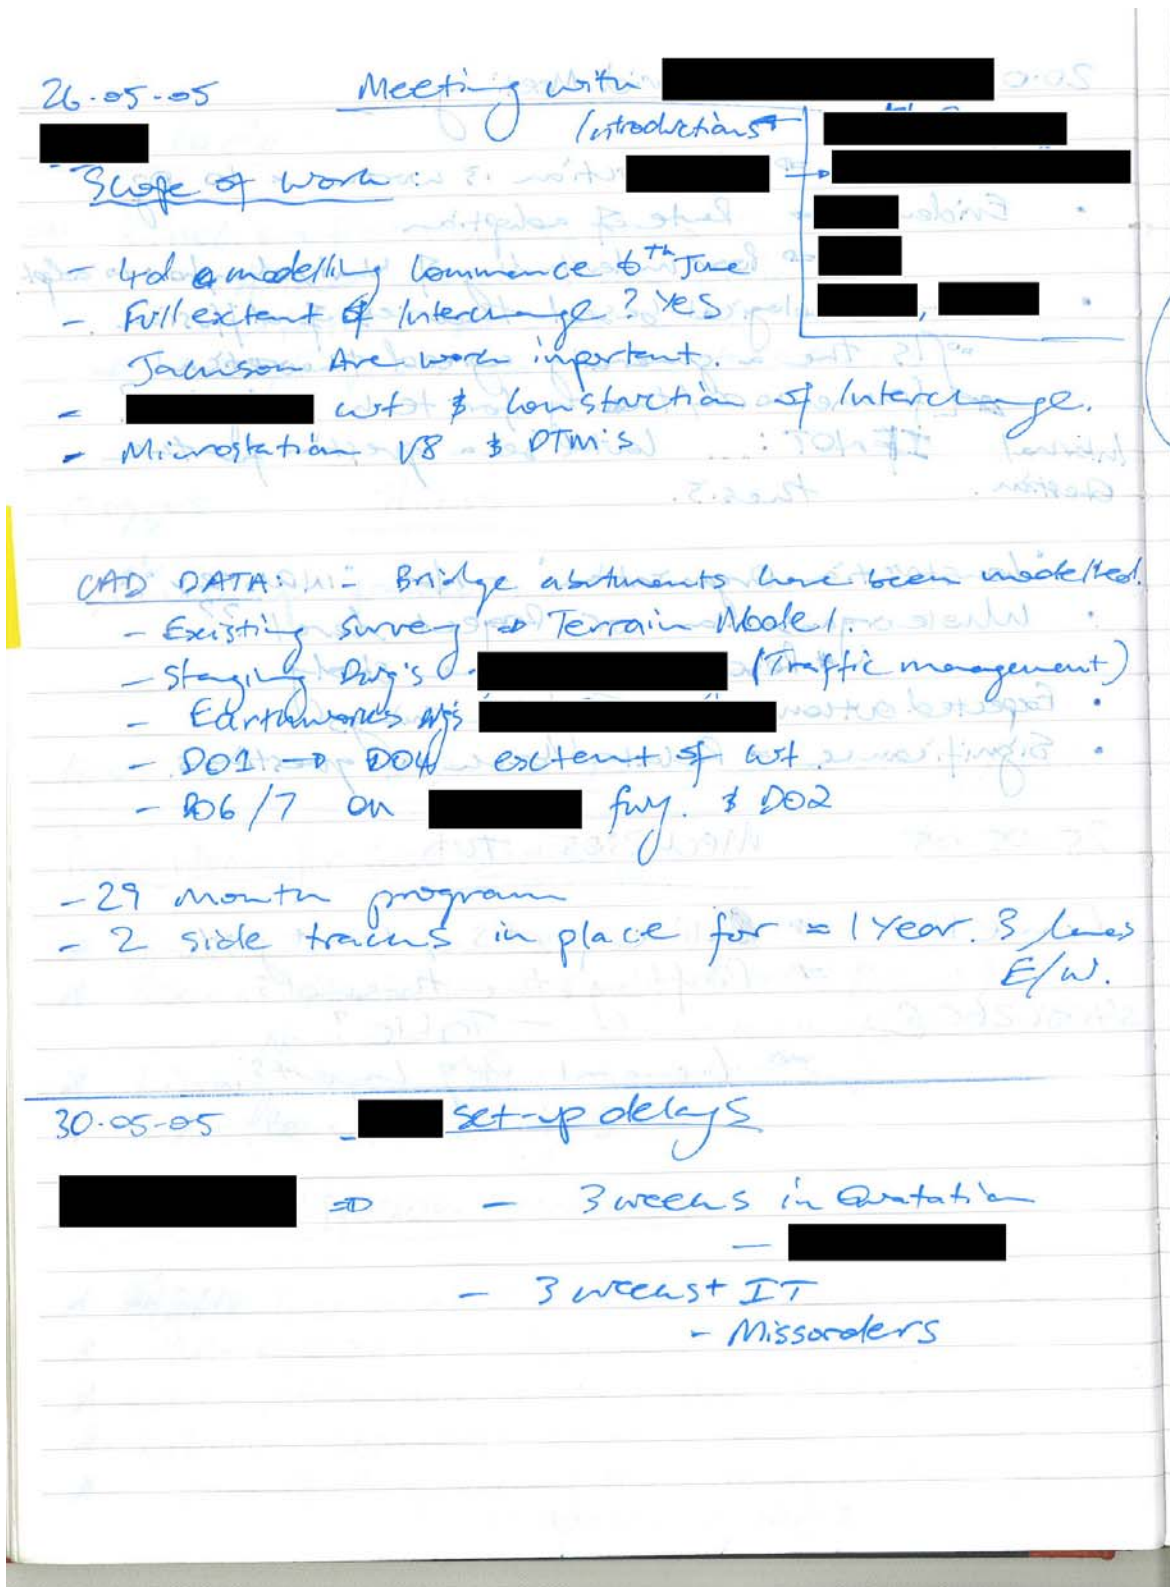 26.05.05 Meeting with
Introductions
Scope of work:
- 4d modelling commence 6th June
- Full extent of Interchange? Yes
Jackson Ave work important.
- cut & Construction of Interchange.
- Microstation V8 & DTM's
CAD DATA: - Bridge abutments have been modelled.
- Existing Survey ⇒ Terrain Model.
- Staging Dwg's. (Traffic management)
- Earthworks
- D01 → D04 extent of cut.
- D06/7 on fwy. & D02
- 29 month program
- 2 side tracks in place for ≈ 1 Year. 3 lanes
E/W.
30.05.05 - set-up delays
⇒ - 3 weeks in Quotation
-
- 3 weeks + IT
- Missorders